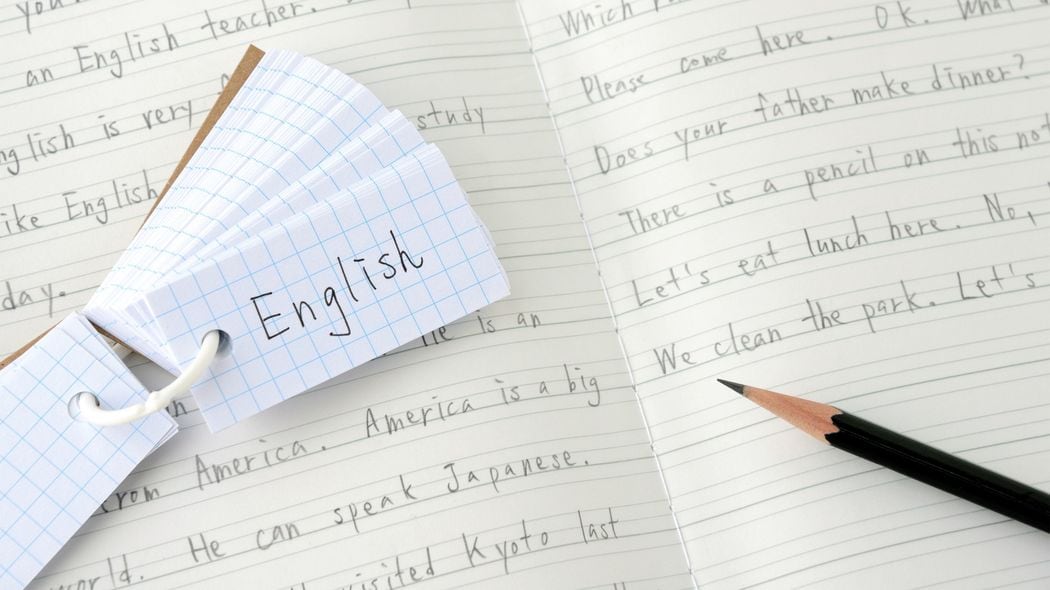 an English teacher.
is very
English
study
day.
English
is an
America. America is a big
He can speak Japanese.
visited Kyoto last
Which
OK. What
Please come here.
Does your father make dinner?
There is a pencil on this
Let's eat lunch here. No,
We clean the park. Let's